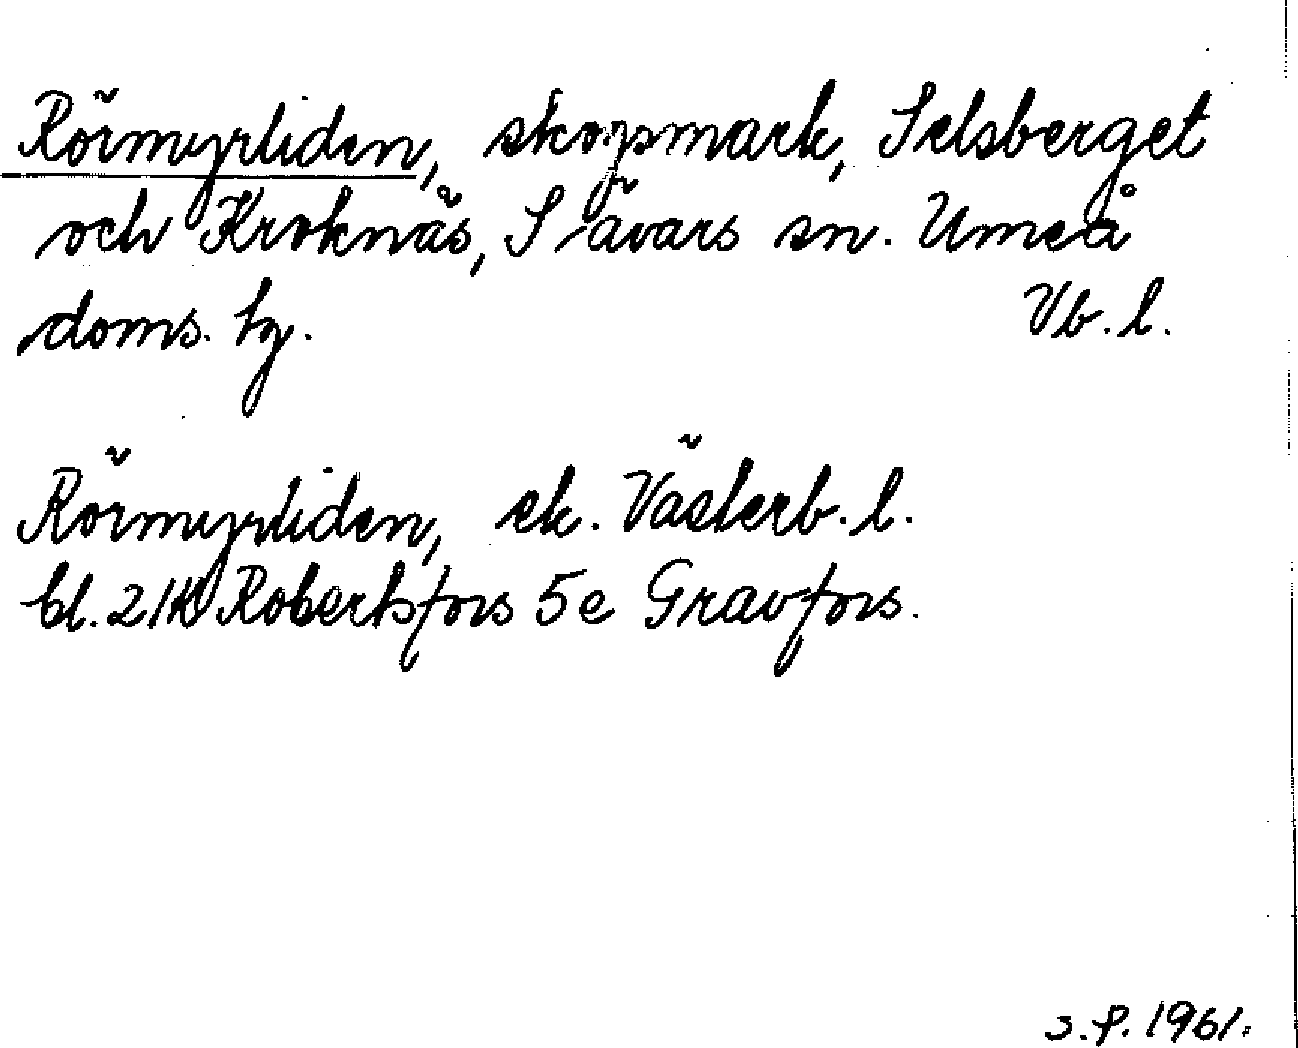 Rörmyrliden, skogsmark, Selsberget
och Kroknäs, Sävars sn. Umeå
doms. hg. Vb. l.
Rörmyrliden, ek. Västerb. l.
bl. 21K Robertsfors 5e Gravfors.
s. P. 1961.